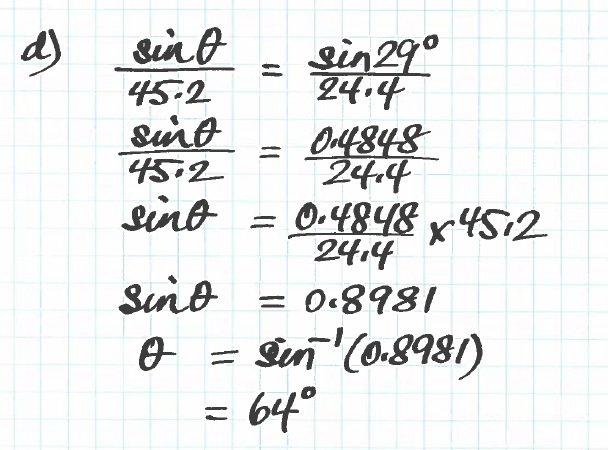 d) sinθ/45.2 = sin29°/24.4
sinθ/45.2 = 0.4848/24.4
sinθ = 0.4848/24.4 × 45.2
sinθ = 0.8981
θ = sin⁻¹(0.8981)
= 64°